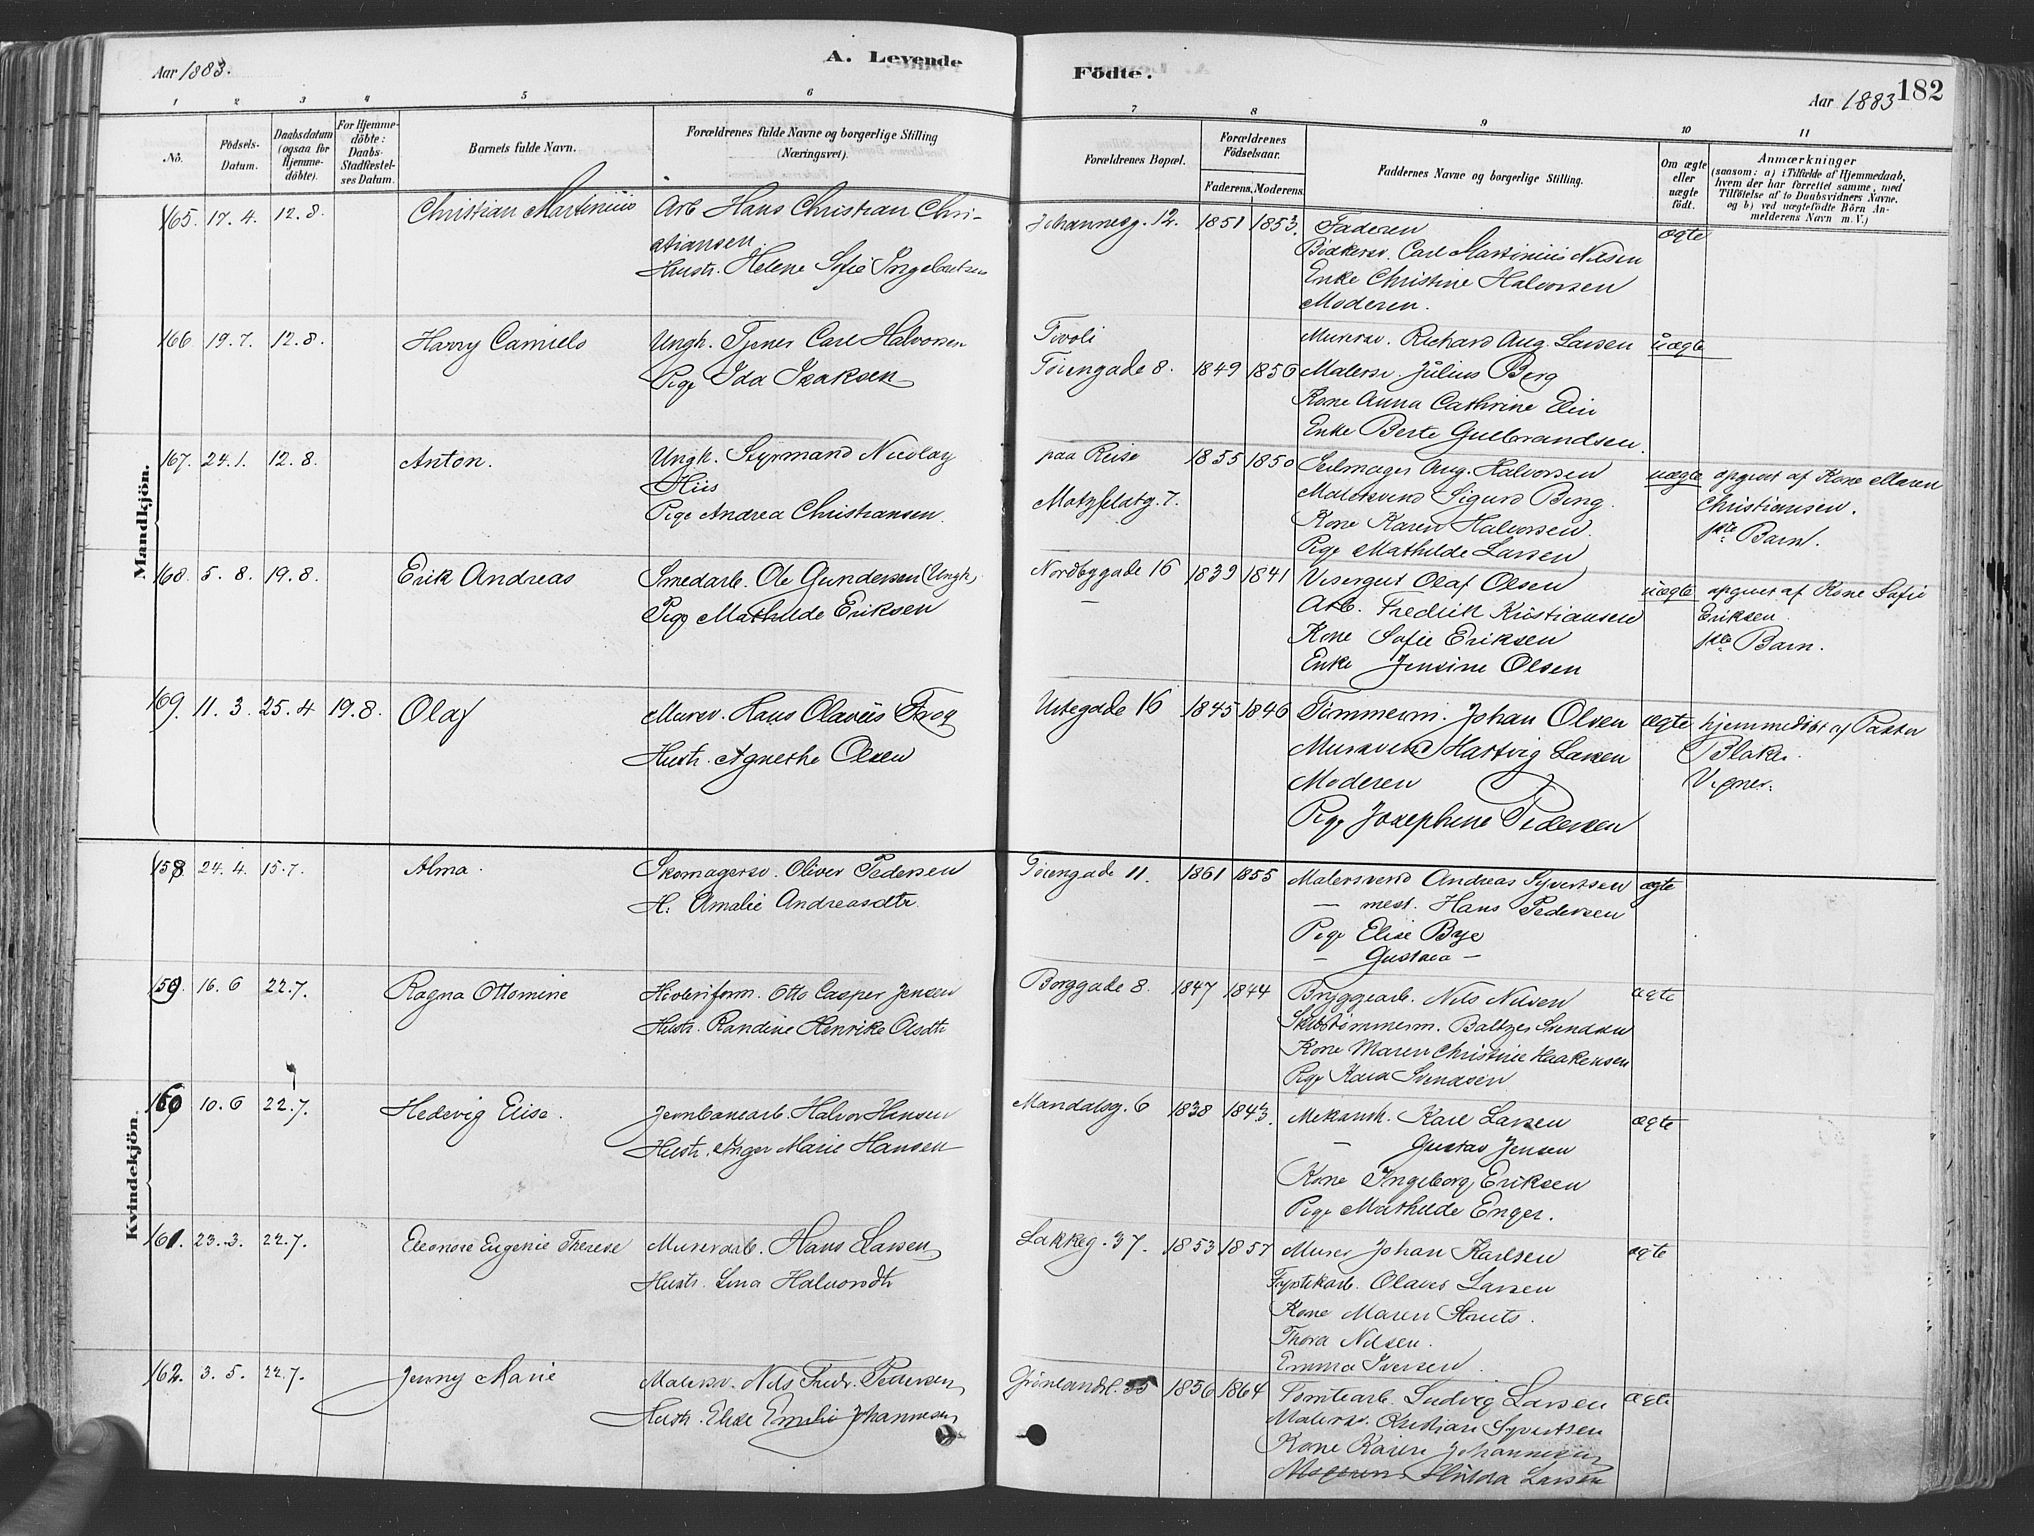 Aar 1883.
A. Levende
Födte.
182
Aar 1883
1 2 3 4 5 6 7 8 9 10 11
No.
Födsels-Datum.
Daabsdatum (ogsaa for Hjemmedöbte).
For Hjemmedöbte: Daabs-Stadfæstelses Datum.
Barnets fulde Navn.
Forældrenes fulde Navne og borgerlige Stilling (Næringsvei).
Forældrenes Bopæl.
Forældrenes Födselsaar.
Faderens. Moderens.
Faddernes Navne og borgerlige Stilling.
Om ægte eller uægte födt.
Anmærkninger
(saasom: a) i Tilfælde af Hjemmedaab, hvem der har forrettet samme, med Tilföielse af to Daabsvidners Navne. og b) ved uægtefödte Börn Anmelderens Navn m. V.)
Mandkjön.
165. 17. 4. 12. 8. Christian Martinius Arb Hans Christian Chri- Johannesg. 12. 1851 1853. Faderen ægte
stiansen. Bödkersv. Carl Martinius Nilsen
Hustr. Helene Sofie Ingebretsen Enke Christine Halvorsen
Moderen.
166 19. 7. 12. 8. Harry Camielo Ungk. Tjener Carl Halvorsen Tivoli Murersv. Richard Aug. Larsen uægte
Pige Ida Isaksen Töiengade 8. 1849 1850 Malersv. Julius Berg
Kone Anna Cathrine Elin
Enke Berte Gulbrandsen.
167. 24. 1. 12. 8. Anton. Ungk. Styrmand Nicolay paa Reise 1855 1850 Seilmager Aug. Halvorsen uægte opgivet af Kone Ellaren
Hiis Motzfeldtg. 7. Malersvend Sigurd Berg. Christiansen.
Pige Andrea Christiansen. Kone Karen Halvorsen. 1ste Barn.
Pige Mathilde Larsen
168. 5. 8. 19. 8. Erik Andreas Smedarb. Ole Gundersen (Ungk. Nordbygade 16 1839 1841 Visergut Olaf Olsen uægte opgivet af Kone Sofie
Pige Mathilde Eriksen — Arb. Fredrik Kristiansen Eriksen
Kone Sofie Eriksen 1ste Barn.
Enke Jensine Olsen
169. 11. 3. 25. 4 19. 8. Olaf Murersv. Hans Olaveus Frog Urtegade 16 1845 1846 Tömmerm. Johan Olsen ægte hjemmedöbt af Pastor
Hustr. Agnethe Olsen Mursvend Hartvig Larsen Blake.
Moderen Vigner.
Pige Josephine Pedersen
Kvindekjön.
158 24. 4. 15. 7. Alma. Skomagersv. Oliver Pedersen Töiengade 11. 1861 1855 Malersvend Andreas Syvertsen ægte
H: Amalie Andreasdtr. — mest. Hans Pedersen
Pige Elise Bye
— Gustava —
159. 16. 6 22. 7. Ragna Ottomine Hövleriform. Otto Casper Jensen Borggade 8. 1847 1844 Bryggearb. Nils Nilsen ægte
Hustr. Randine Henrike Olsdtr Skibstömmerm. Baltzer Svendsen
Kone Maren Christine Haakensen
Pige Kaia Svendsen
160 10. 6 22. 7. Hedevig Elise. Jernbanearb. Halvor Hansen Mandalsg. 6 1838 1843. Mekanik. Karl Larsen ægte
Hustr. Inger Marie Hansen — Gustav Jensen
Kone Ingeborg Eriksen
Pige Mathilde Enger.
161. 23. 3. 22. 7. Eleonore Eugenie Therese Murerarb. Hans Larsen Lakkeg. 37. 1853 1857 Murer Johan Karlsen ægte
Hustr. Lina Halvorsdtr Fyrstikarb. Olaves Larsen
Kone Maren Struts.
Thora Nilsen.
Emma Iversen.
162. 3. 5. 22. 7. Jenny Marie Malersv. Nils Fredr. Pedersen Grönlandsl. 35 1856 1864 Tomtearb. Ludvig Larsen ægte
Hustr. Elise Emilie Johannesen Malersv. Kristian Syvertsen
Kone Karen Johannesen
Hulda Larsen